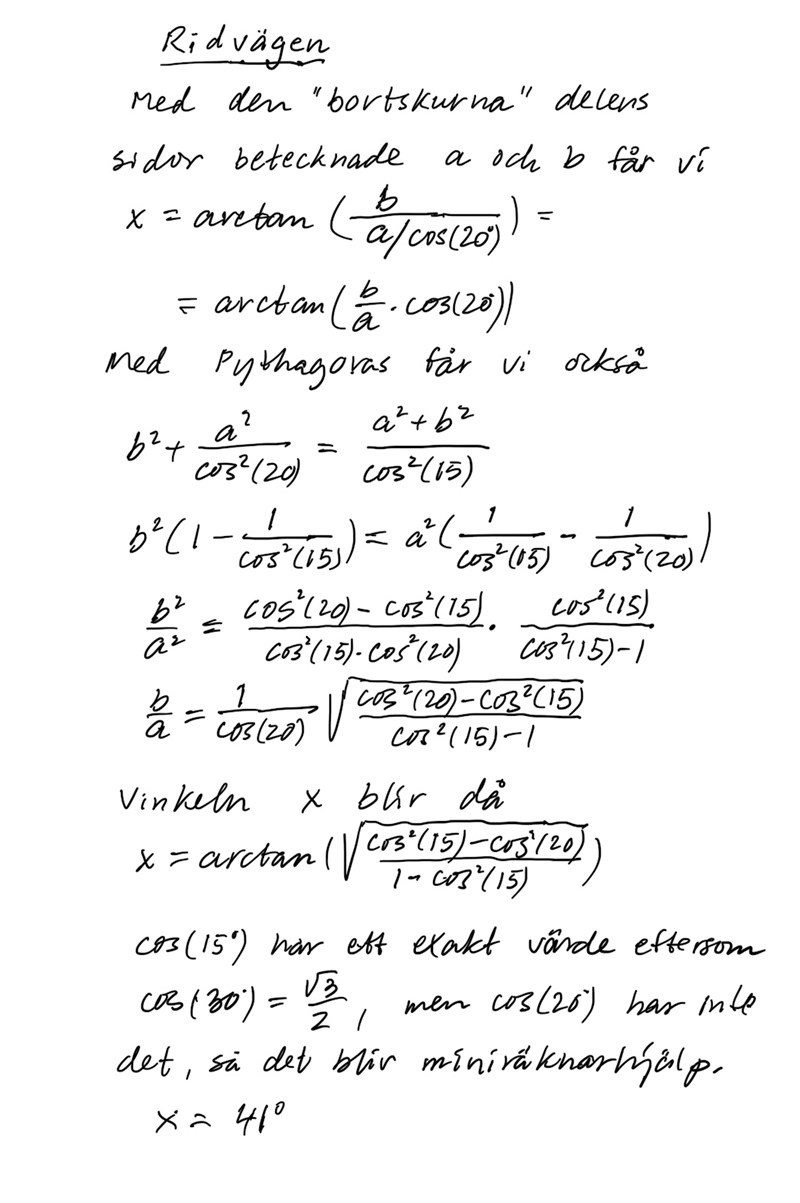 Ridvägen
Med den "bortskurna" delens
sidor betecknade a och b får vi
x = arctan (b / (a/cos(20°))) =
= arctan(b/a · cos(20°))
Med Pythagoras får vi också
b² + a²/cos²(20) = (a² + b²)/cos²(15)
b²(1 - 1/cos²(15)) = a²(1/cos²(15) - 1/cos²(20))
b²/a² = (cos²(20) - cos²(15))/(cos²(15)·cos²(20)) · cos²(15)/(cos²(15) - 1)
b/a = 1/cos(20) √((cos²(20) - cos²(15))/(cos²(15) - 1))
Vinkeln x blir då
x = arctan(√((cos²(15) - cos²(20))/(1 - cos²(15))))
cos(15°) har ett exakt värde eftersom
cos(30°) = √3/2, men cos(20°) har inte
det, så det blir miniräknarhjälp.
x = 41°